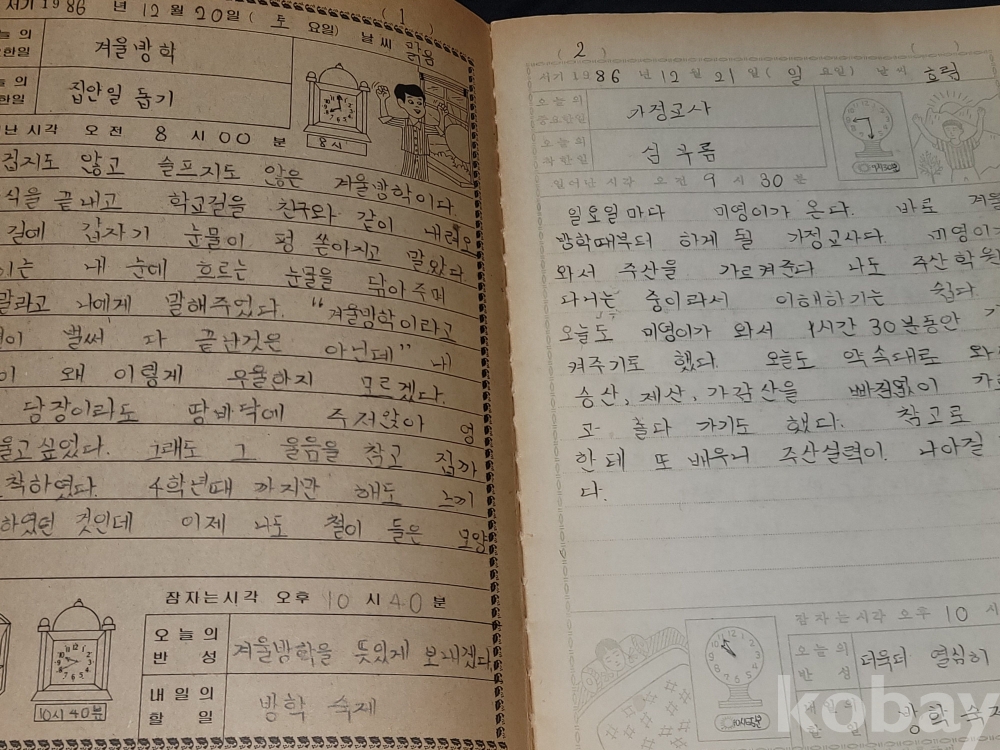 ( 1 )
서기 1986 년 12 월 20일 ( 토 요일) 날씨 맑음
겨울방학
집안일 돕기
난시각 오전 8 시 00 분
8시
겁지도 않고 슬프지도 않은 겨울방학이다.
식을 끝내고 학교길을 친구와 같이 내려오
길에 갑자기 눈물이 펑 쏟아지고 말았다
이는 내 눈에 흐르는 눈물을 닦아주며
말라고 나에게 말해주었다. "겨울방학이라고
이 벌써 다 끝난것은 아닌데" 내
이 왜 이렇게 우울하지 모르겠다.
당장이라도 땅바닥에 주저앉아 엉
울고싶었다. 그래도 그 울음을 참고 집까
착하였다. 4학년때 까지만 해도 느끼
하였던 것인데 이제 나도 철이 들은 모양
잠자는시각 오후 10 시 40 분
오늘의 반성 겨울방학을 뜻있게 보내겠다.
내일의 할일 방학 숙제
10시 40분
( 2 ) ( )
서기 1986 년 12 월 21 일 ( 일 요일) 날씨 흐림
오늘의 중요한일 가정교사
오늘의 착한일 심부름
일어난시각 오전 9 시 30 분
일요일마다 미영이가 온다. 바로 겨울
방학때부터 하게 될 가정교사다. 미영이가
와서 주산을 가르켜준다 나도 주산학원
다니는 중이라서 이해하기는 쉽다.
오늘도 미영이가 와서 1시간 30분동안 가
켜주기도 했다. 오늘도 약속대로 와
승산, 제산, 가감산을 빠짐없이 가르
고 놀다 가기도 했다. 참고로
한테 또 배우니 주산실력이 나아질
다.
잠자는시각 오후 10 시
오늘의 반성 더욱더 열심히
내일의 할일 방학숙제
kobay